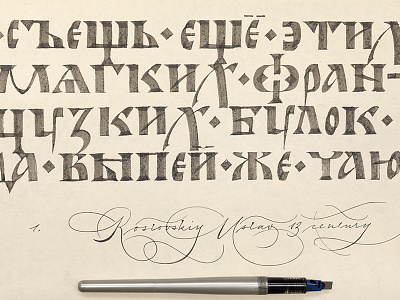 · СЪЕШЬ · ЕЩЁ · ЭТИХ
МЯГКИХ · ФРАН-
ЦУЗКИХ · БУЛОК ·
ДА · ВЫПЕЙ · ЖЕ · ЧАЮ
1. Rostovskiy Ustav 13 century